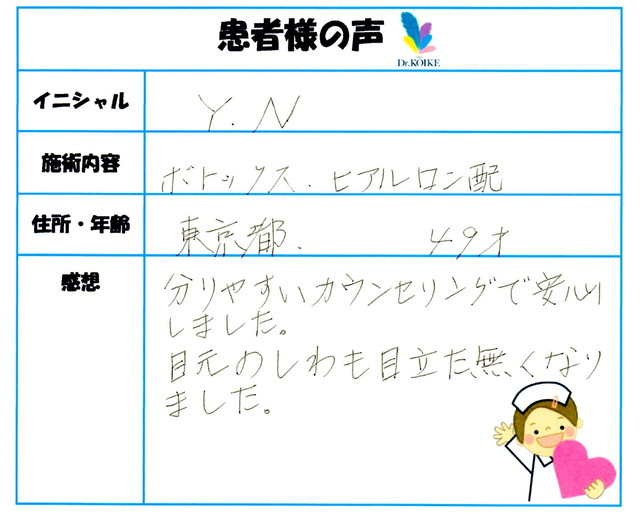 患者様の声
Dr.KOIKE
イニシャル Y.N
施術内容 ボトックス.ヒアルロン配
住所・年齢 東京都. 49才
感想 分りやすいカウンセリングで安心
しました。
目元のしわも目立た無くなり
ました。